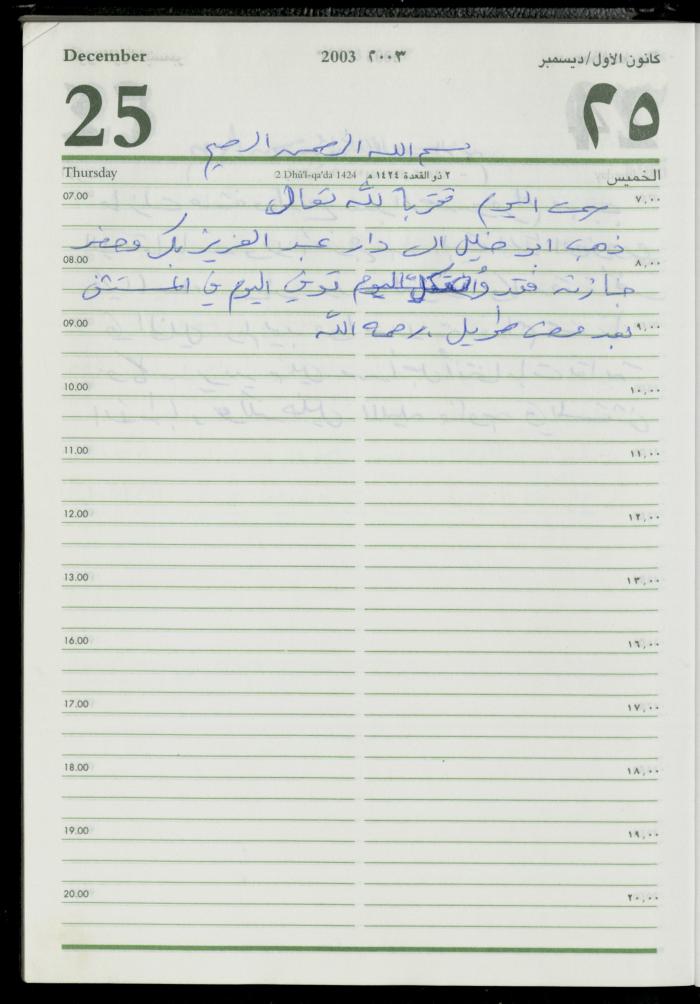 December 2003 ٢٠٠٣ كانون الأول/ديسمبر
25 ٢٥
بسم الله الرحمن الرحيم
Thursday 2 Dhū'l-qa'da 1424 ٢ ذو القعدة ١٤٢٤ م الخميس
07.00 ٧,٠٠
صمت اليوم تقربا لله تعالى
ذهب ابو خليل الى دار عبد العزيز بكر وحضر
08.00 ٨,٠٠
جنازته فقد اليوم توفي اليوم في المستشفى
09.00 ٩,٠٠
بعد مرض طويل رحمه الله
10.00 ١٠,٠٠
11.00 ١١,٠٠
12.00 ١٢,٠٠
13.00 ١٣,٠٠
16.00 ١٦,٠٠
17.00 ١٧,٠٠
18.00 ١٨,٠٠
19.00 ١٩,٠٠
20.00 ٢٠,٠٠